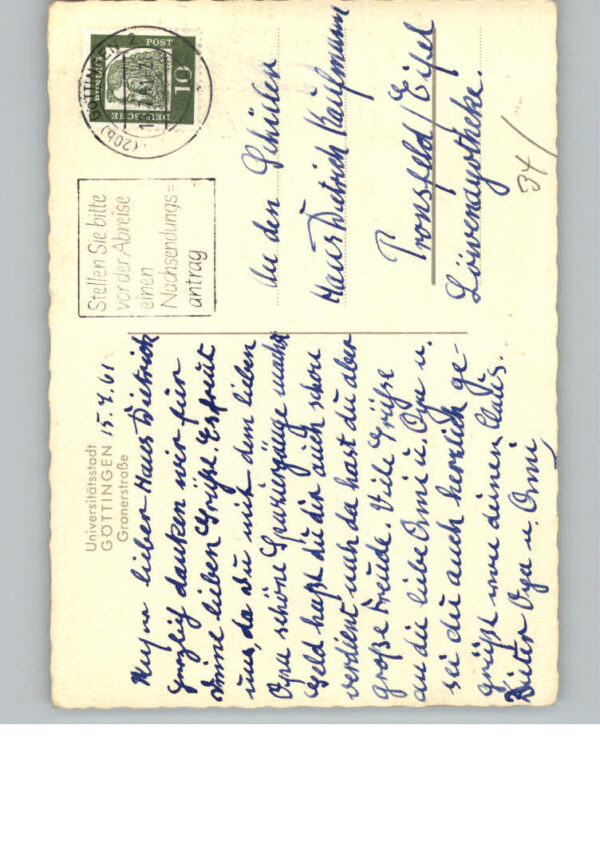 Universitätsstadt
GÖTTINGEN 15.7.61
Gronerstraße
lieber Hans Dietrich
danken wir für
deine lieben Grüße. Es freut
uns, da du mit dem lieben
Opa schöne Spaziergänge machst
Geld hast du dir auch schon
verdient nah da hast du aber
große Freude. Viele Grüße
an die liebe Omi u. Opa u.
sei du auch herzlich ge-
grüßt von deinen
Dieter Opa u. Omi
GÖTTINGEN 2
(20b)
DEUTSCHE
POST
10
Stellen Sie bitte
vor der Abreise
einen
Nachsendungs=
antrag
An den Schüler
Hans Dietrich Kaufmann
Pronsfeld/Eifel
Löwenapotheke.
34/